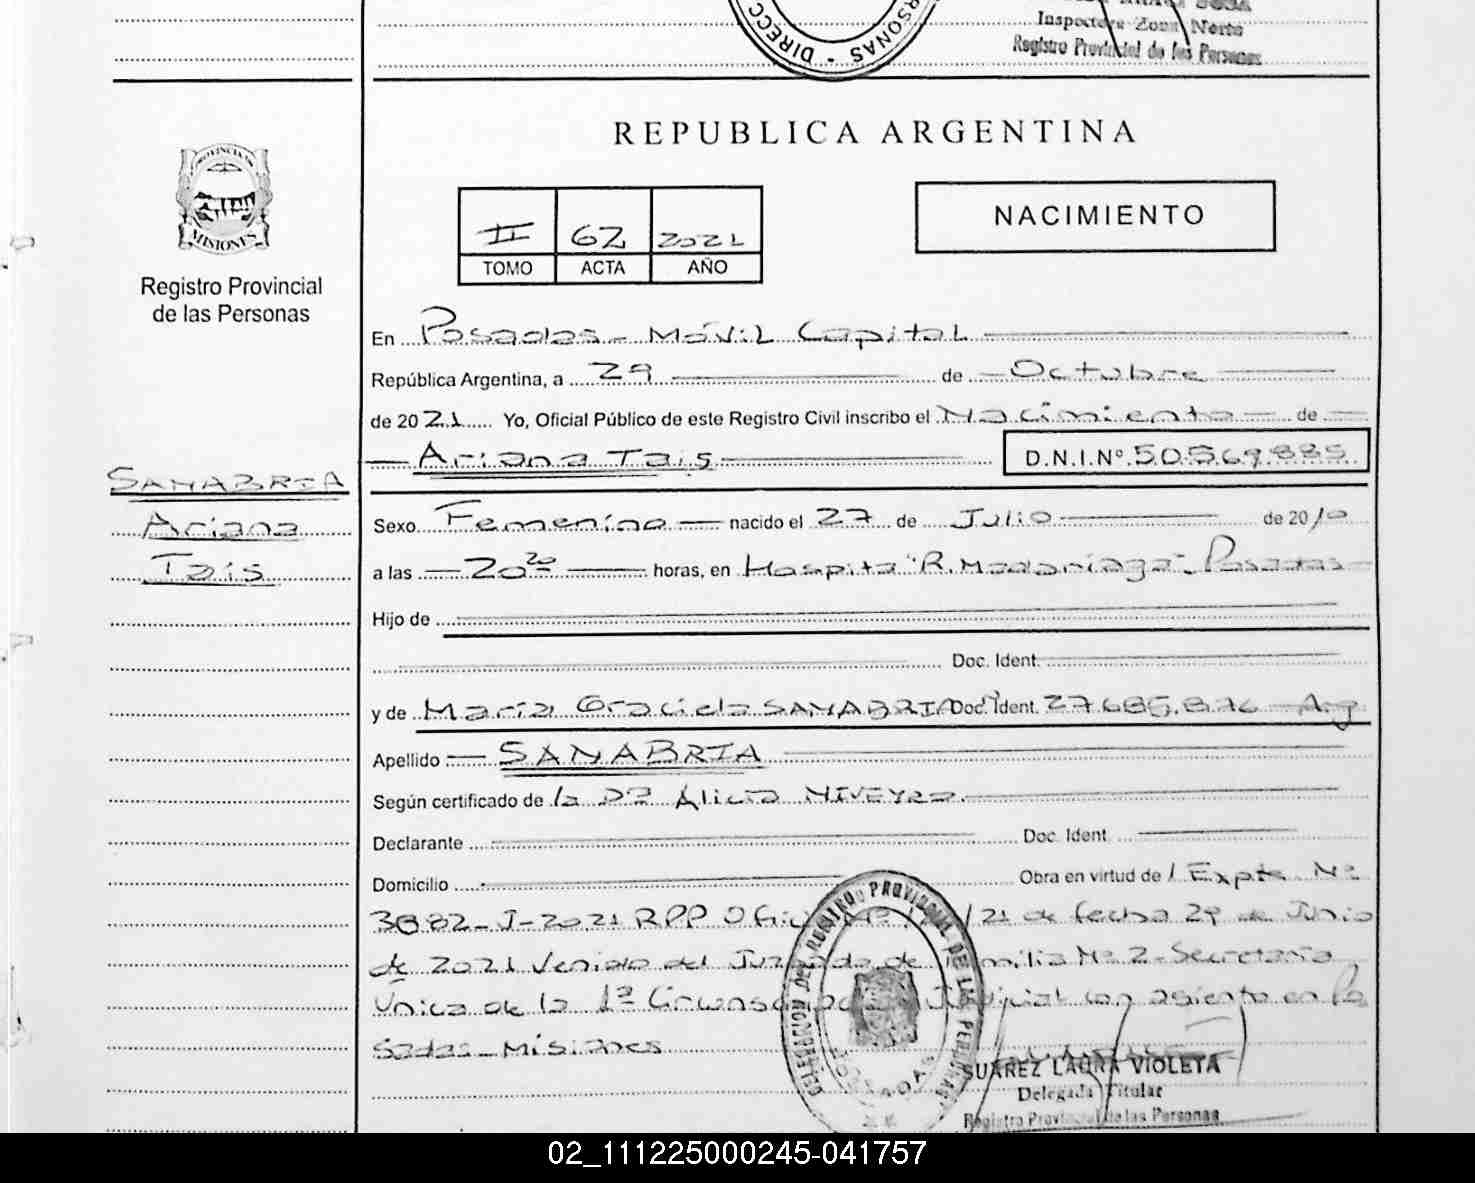 DIRECC
PERSONAS -
Inspectora Zona Norte
Registro Provincial de las Personas
REPUBLICA ARGENTINA
PROVINCIA DE
MISIONES
Registro Provincial
de las Personas
II 62 2021
TOMO ACTA AÑO
NACIMIENTO
En Posadas - Móvil Capital
República Argentina, a 29 de Octubre
de 2021 Yo, Oficial Público de este Registro Civil inscribo el Nacimiento de
Ariana Tais D.N.I.Nº 50.569.885
SANABRIA
Ariana
Tais
Sexo Femenino nacido el 27 de Julio de 2010
a las 20 20 horas, en Hospital "R. Madariaga" - Posadas
Hijo de
Doc. Ident.
y de María Graciela SANABRIA Doc. Ident. 27.685.876 Arg
Apellido SANABRIA
Según certificado de la Dra Alicia NIVEYRO.
Declarante Doc. Ident.
Domicilio Obra en virtud de Expte Nº
3882-J-2021 RPP Oficio /21 de fecha 29 de Junio
de 2021 Venido del Juzgado de Familia Nº 2 - Secretaría
Única de la 1ª Circunscripción Judicial con asiento en Po
sadas - Misiones
DELEGACION DEL REGISTRO PROVINCIAL DE LAS PERSONAS
POSADAS
SUAREZ LAURA VIOLETA
Delegada Titular
Registro Provincial de las Personas
02_111225000245-041757